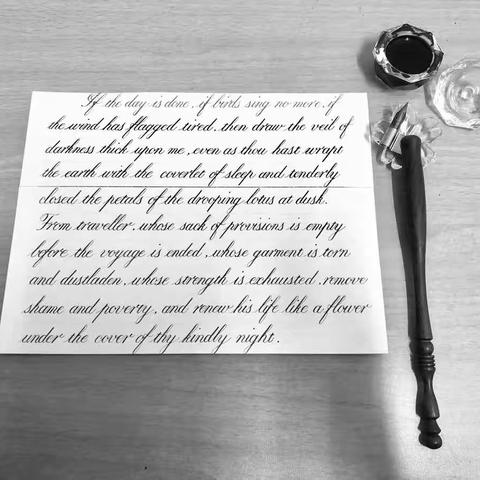 If the day is done, if birds sing no more, if
the wind has flagged tired, then draw the veil of
darkness thick upon me, even as thou hast wrapt
the earth with the coverlet of sleep and tenderly
closed the petals of the drooping lotus at dusk.
From traveller, whose sack of provisions is empty
before the voyage is ended, whose garment is torn
and dustladen, whose strength is exhausted, remove
shame and poverty, and renew his life like a flower
under the cover of thy kindly night.